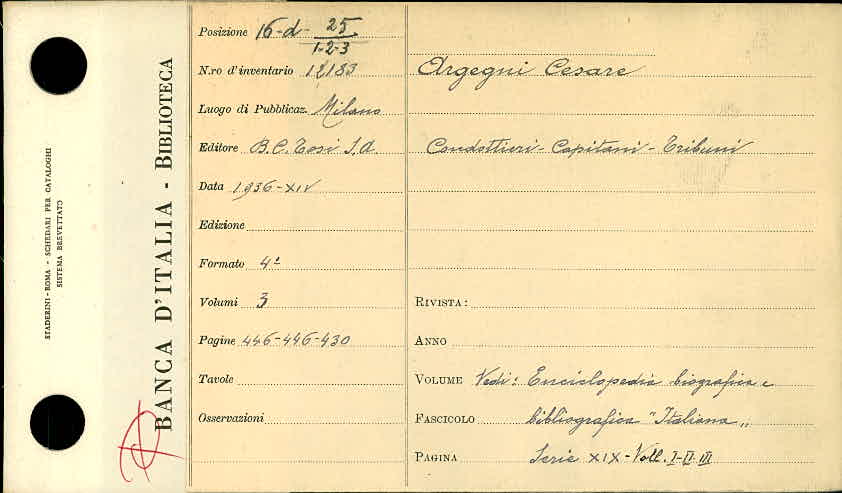 STADERINI-ROMA - SCHEDARI PER CATALOGHI
SISTEMA BREVETTATO
BANCA D'ITALIA - BIBLIOTECA
Posizione 16-d- 25
1-2-3
N.ro d'inventario 12183
Luogo di Pubblicaz. Milano
Editore B.C. Tosi S.A.
Data 1936-XIV
Edizione
Formato 4º
Volumi 3
Pagine 446-446-430
Tavole
Osservazioni
Argegni Cesare
Condottieri - Capitani - Tribuni
RIVISTA:
ANNO
VOLUME Vedi: Enciclopedia biografica e
FASCICOLO bibliografica "Italiana"
PAGINA Serie XIX - Voll. I-II-III